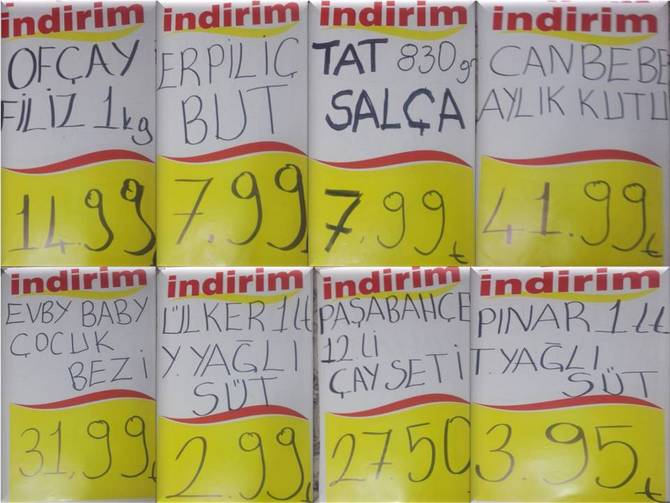 indirim
OFÇAY
FİLİZ 1kg
14.99
indirim
ERPİLİÇ
BUT
7.99
indirim
TAT 830gr
SALÇA
7.99 t
indirim
CANBEBE
AYLIK KUTU
41.99 t
indirim
EVBY BABY
ÇOCUK
BEZİ
31,99 t
indirim
ÜLKER 1 Lt
Y. YAĞLI
SÜT
2.99 t
indirim
PAŞABAHÇE
12 Lİ
ÇAY SETİ
27.50
indirim
PINAR 1 Lt
T. YAĞLI
SÜT
3.95 t